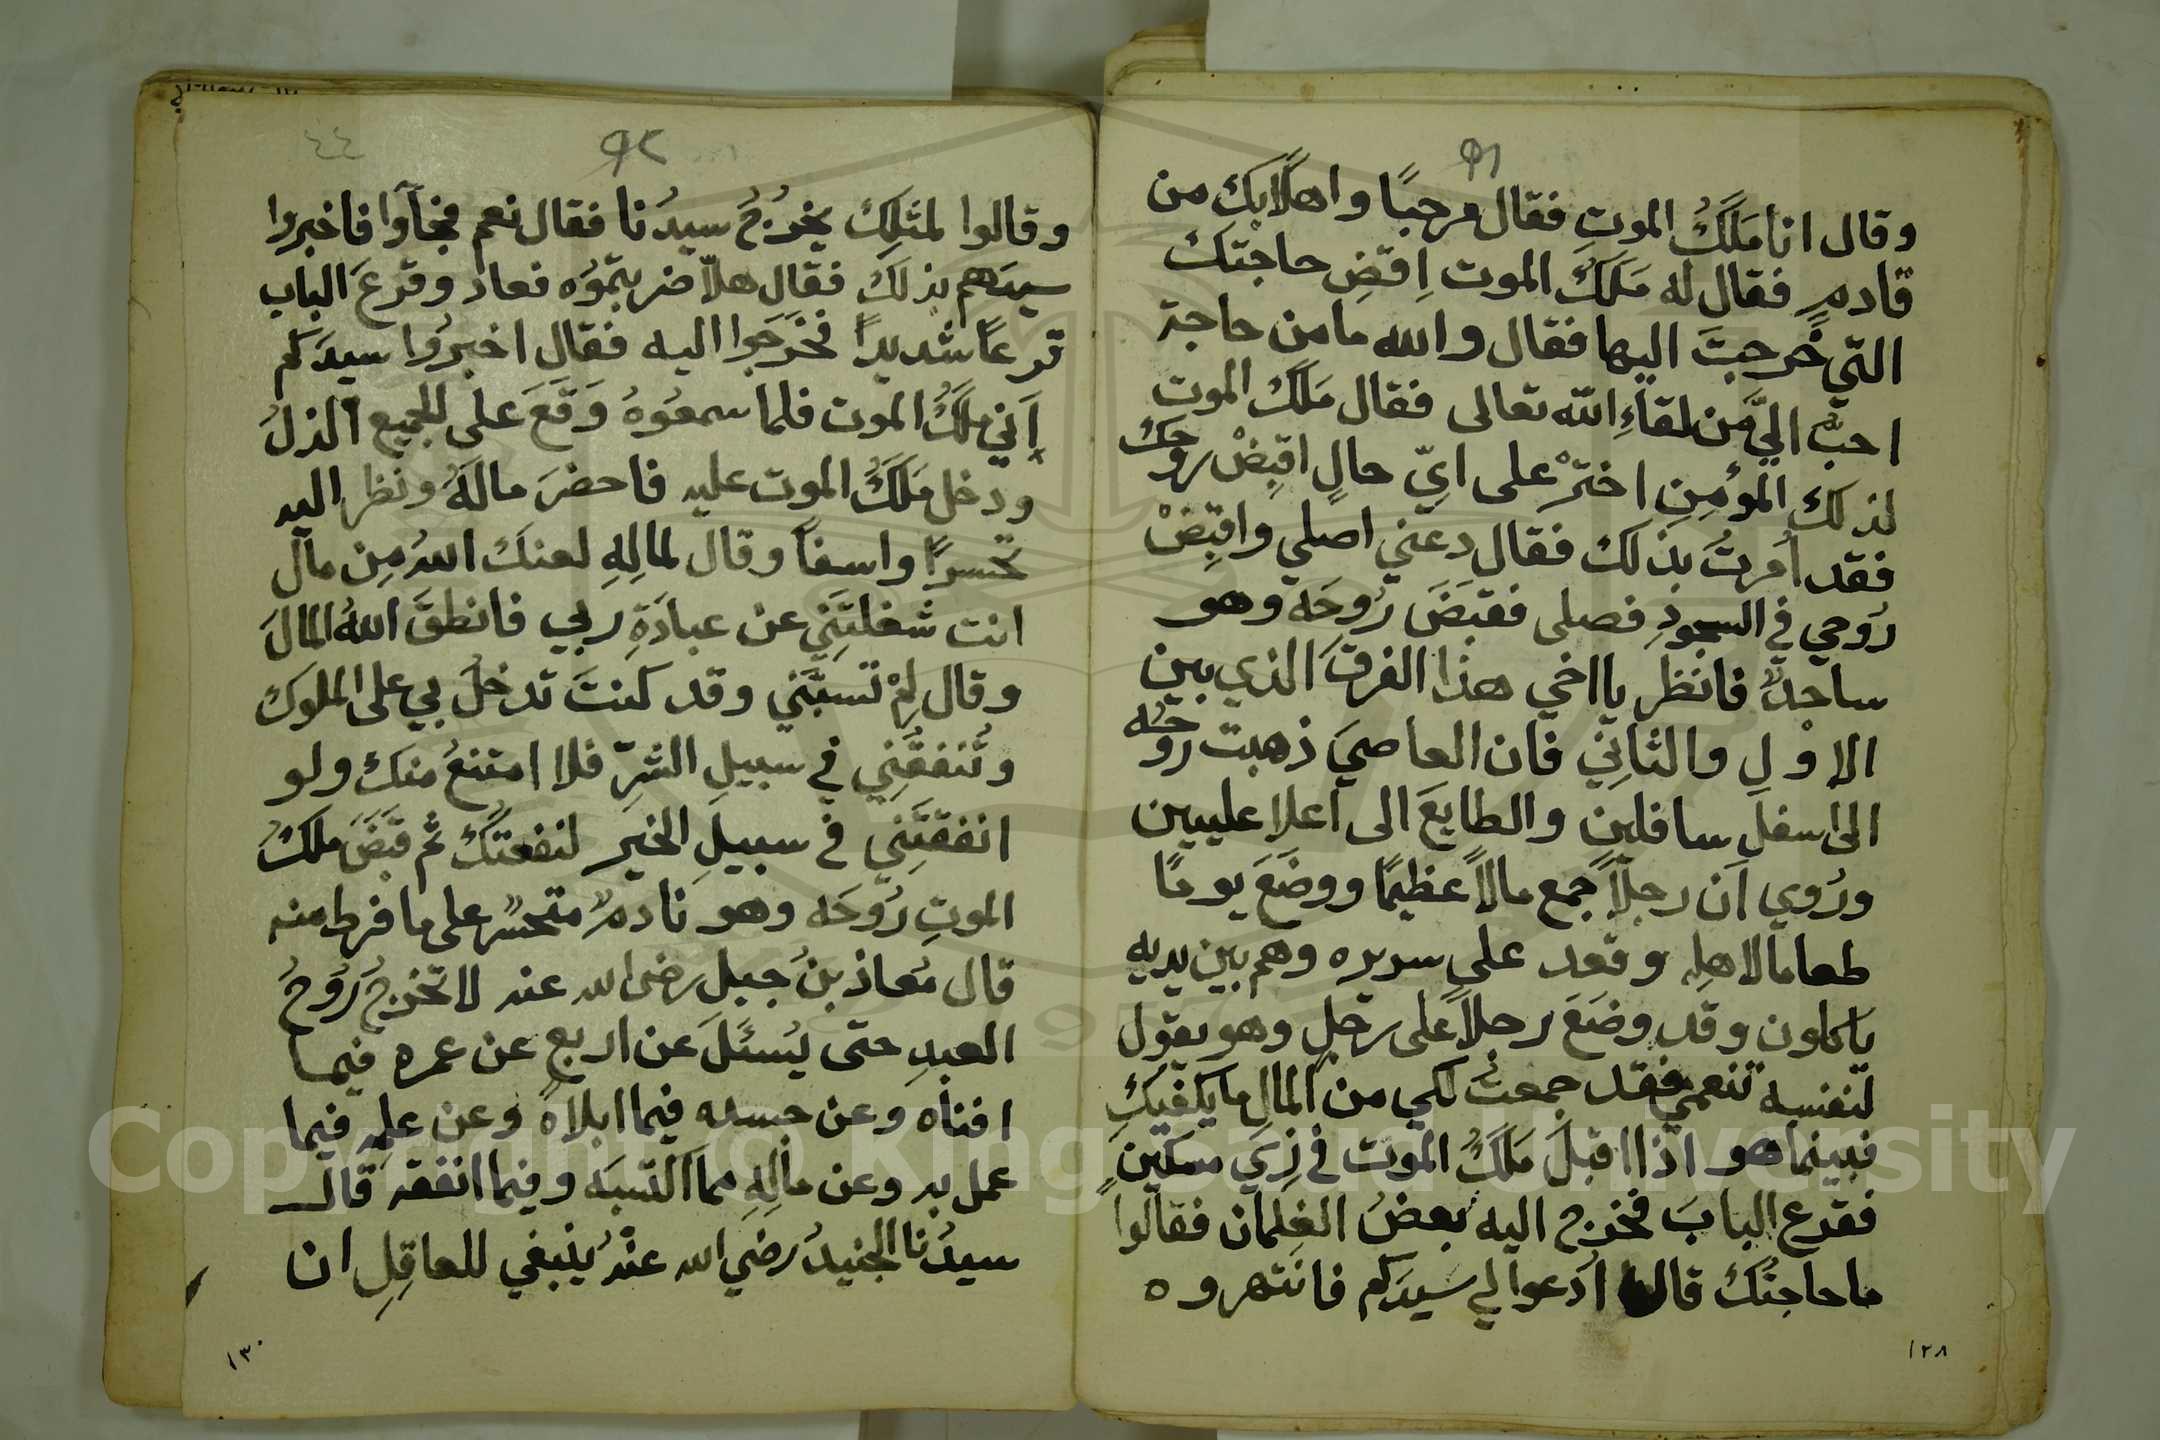 ٩١
وقال انا مَلَكُ الموتِ فقال مرحبًا واهلًا بكِ من
قادمٍ فقال له مَلَكُ الموت اِقضِ حاجْتكَ
التي خَرجتَ اليها فقال والله ما من حاجة
احبُّ اليَّ من لقاءِ الله تعالى فقال مَلَكُ الموت
لذلك المؤمِنِ اختَرْ على ايِّ حالٍ اقبِضْ روحك
فقد اُمرتُ بذلك فقال دعني اصلي واقبِضْ
رُوحي في السجودِ فصلى فقبَضَ رُوحَه وهو
ساجدٌ فانظر يا اخي هذا الفرقَ الذي بين
الاوْلِ والثانِي فان العاصيَ ذهبت روحُه
الى اسفلَ سافلين والطايعَ الى اعلا عليين
ورُوي اَن رجلًا جمع مالًا عظيمًا ووضَعَ يومًا
طعاما لاهلِه وقعد على سريره وهم بين يديه
ياكلون وقد وضَعَ رجلًا على رجلٍ وهو يقول
لنفسه تنعمي فقد جمعتُ لكي من المالِ ما يكفيكِ
فبينما هو اذا اقبلَ مَلَكُ الموت في زِيِّ مسكينٍ
فقرع البابَ فخرج اليه بعضُ الغِلمان فقالوا
ما حاجتُك قال ادعوا لي سَيدَكم فانتهروه
١٢٨
٩٢
٤٤
وقالوا لمثلِكَ يخرُجُ سيدُنا فقال نعم فجآوا فاخبروا
سيدَهم بذلكَ فقال هلّا ضربتموُه فعاد وقرعَ الباب
قرعًا شديدًا فخَرَجوا اليه فقال اخبرُوا سيدَكم
اَني ملَكُ الموت فلما سمعوُهُ وَقَعَ على الجميع الذلُ
ودخل مَلَكُ الموت عليه فاحضرَ مالَهُ ونظر اليه
تحسرًا واسفًا وقال لمالِهِ لعنكَ اللهُ مِن مالٍ
انت شغلتَنِي عن عبادَةِ ربي فانطقَ اللهُ المالَ
وقال لِمْ تسبَّني وقد كنتَ تدخلُ بي على الملوك
وتُنفقُنِي في سبيلِ الشرِّ فلا امتنعُ منك ولو
انفقتَنِي في سبيلِ الخيرِ لنفعتُكَ ثم قبَضَ ملكُ
الموتِ رُوحَه وهو نادمٌ متحسرٌ على ما فرط منه
قال مُعاذ بنُ جبلٍ رضى الله عنه لا تخرجُ رُوحُ
العبدِ حتى يُسئَلَ عن اربعٍ عن عمره فيما
افناه وعن جسده فيما ابلاهُ وعن علمِه فيما
عمل به وعن مالِهِ مما اكتسبَه وفيما انفقه قال
سيدُنا الجنيدُ رضي الله عنْهُ ينبغي للعاقِلِ ان
١٣٠
Copyright © King Saud University